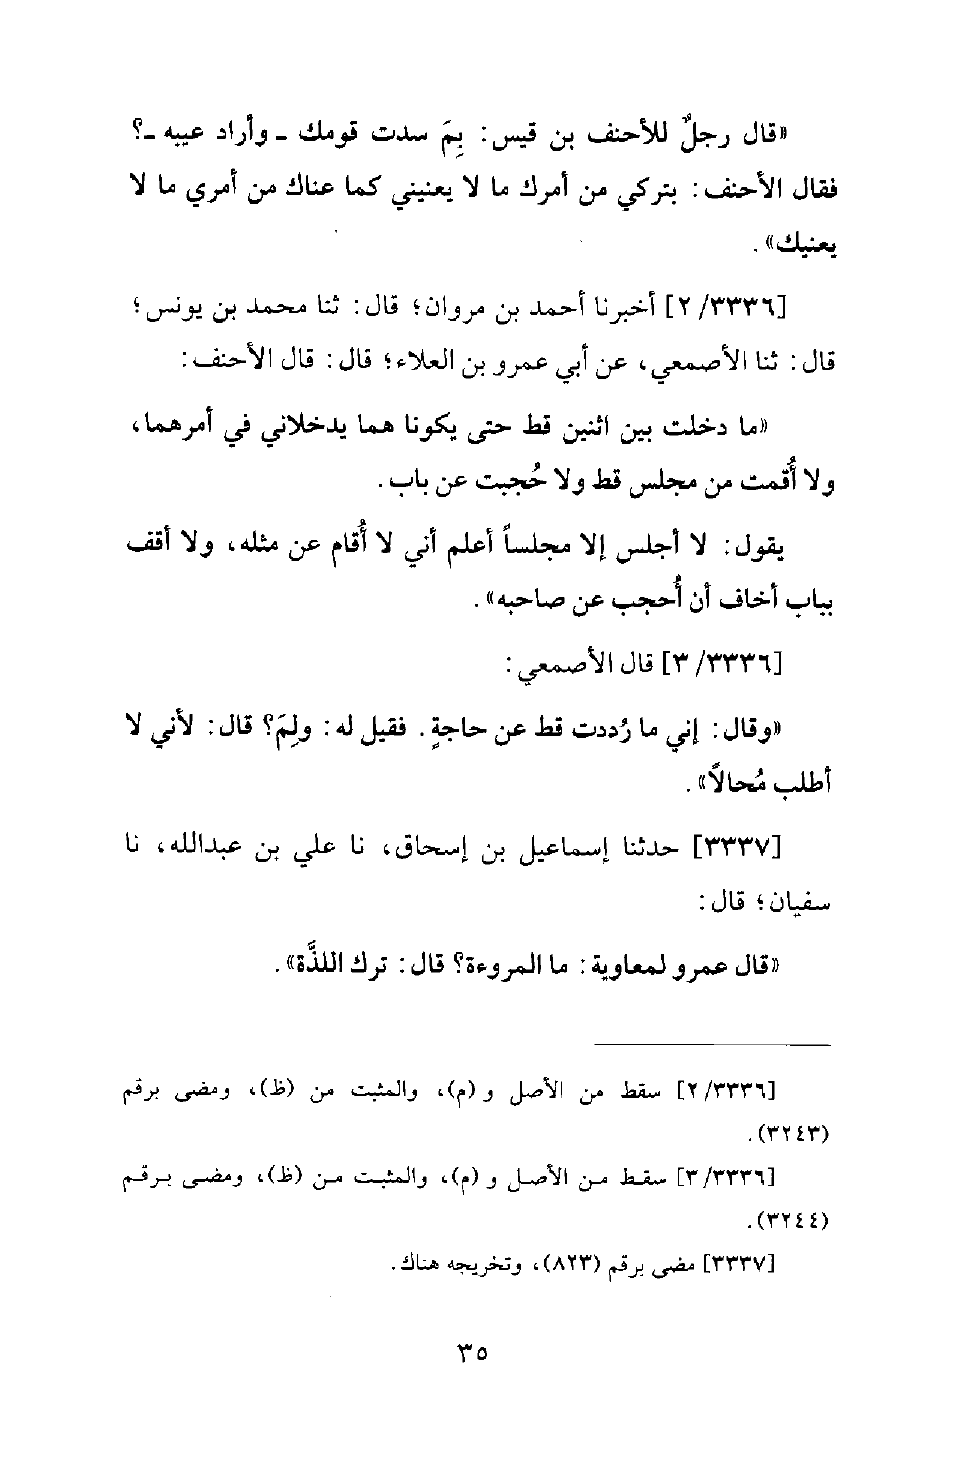 «قال رجلٌ للأحنف بن قيس: بِمَ سدت قومك ـ وأراد عيبه ـ؟
فقال الأحنف: بتركي من أمرك ما لا يعنيني كما عناك من أمري ما لا
يعنيك».
[٣٣٣٦/ ٢] أخبرنا أحمد بن مروان؛ قال: ثنا محمد بن يونس؛
قال: ثنا الأصمعي، عن أبي عمرو بن العلاء؛ قال: قال الأحنف:
«ما دخلت بين اثنين قط حتى يكونا هما يدخلاني في أمرهما،
ولا أُقمت من مجلس قط ولا حُجبت عن باب.
يقول: لا أجلس إلا مجلساً أعلم أني لا أُقام عن مثله، ولا أقف
بباب أخاف أن أُحجب عن صاحبه».
[٣٣٣٦/ ٣] قال الأصمعي:
«وقال: إني ما رُددت قط عن حاجةٍ. فقيل له: ولِمَ؟ قال: لأني لا
أطلب مُحالاً».
[٣٣٣٧] حدثنا إسماعيل بن إسحاق، نا علي بن عبدالله، نا
سفيان؛ قال:
«قال عمرو لمعاوية: ما المروءة؟ قال: ترك اللذَّة».
[٣٣٣٦/ ٢] سقط من الأصل و (م)، والمثبت من (ظ)، ومضى برقم
(٣٢٤٣).
[٣٣٣٦/ ٣] سقط من الأصل و (م)، والمثبت من (ظ)، ومضى برقم
(٣٢٤٤).
[٣٣٣٧] مضى برقم (٨٢٣)، وتخريجه هناك.
٣٥